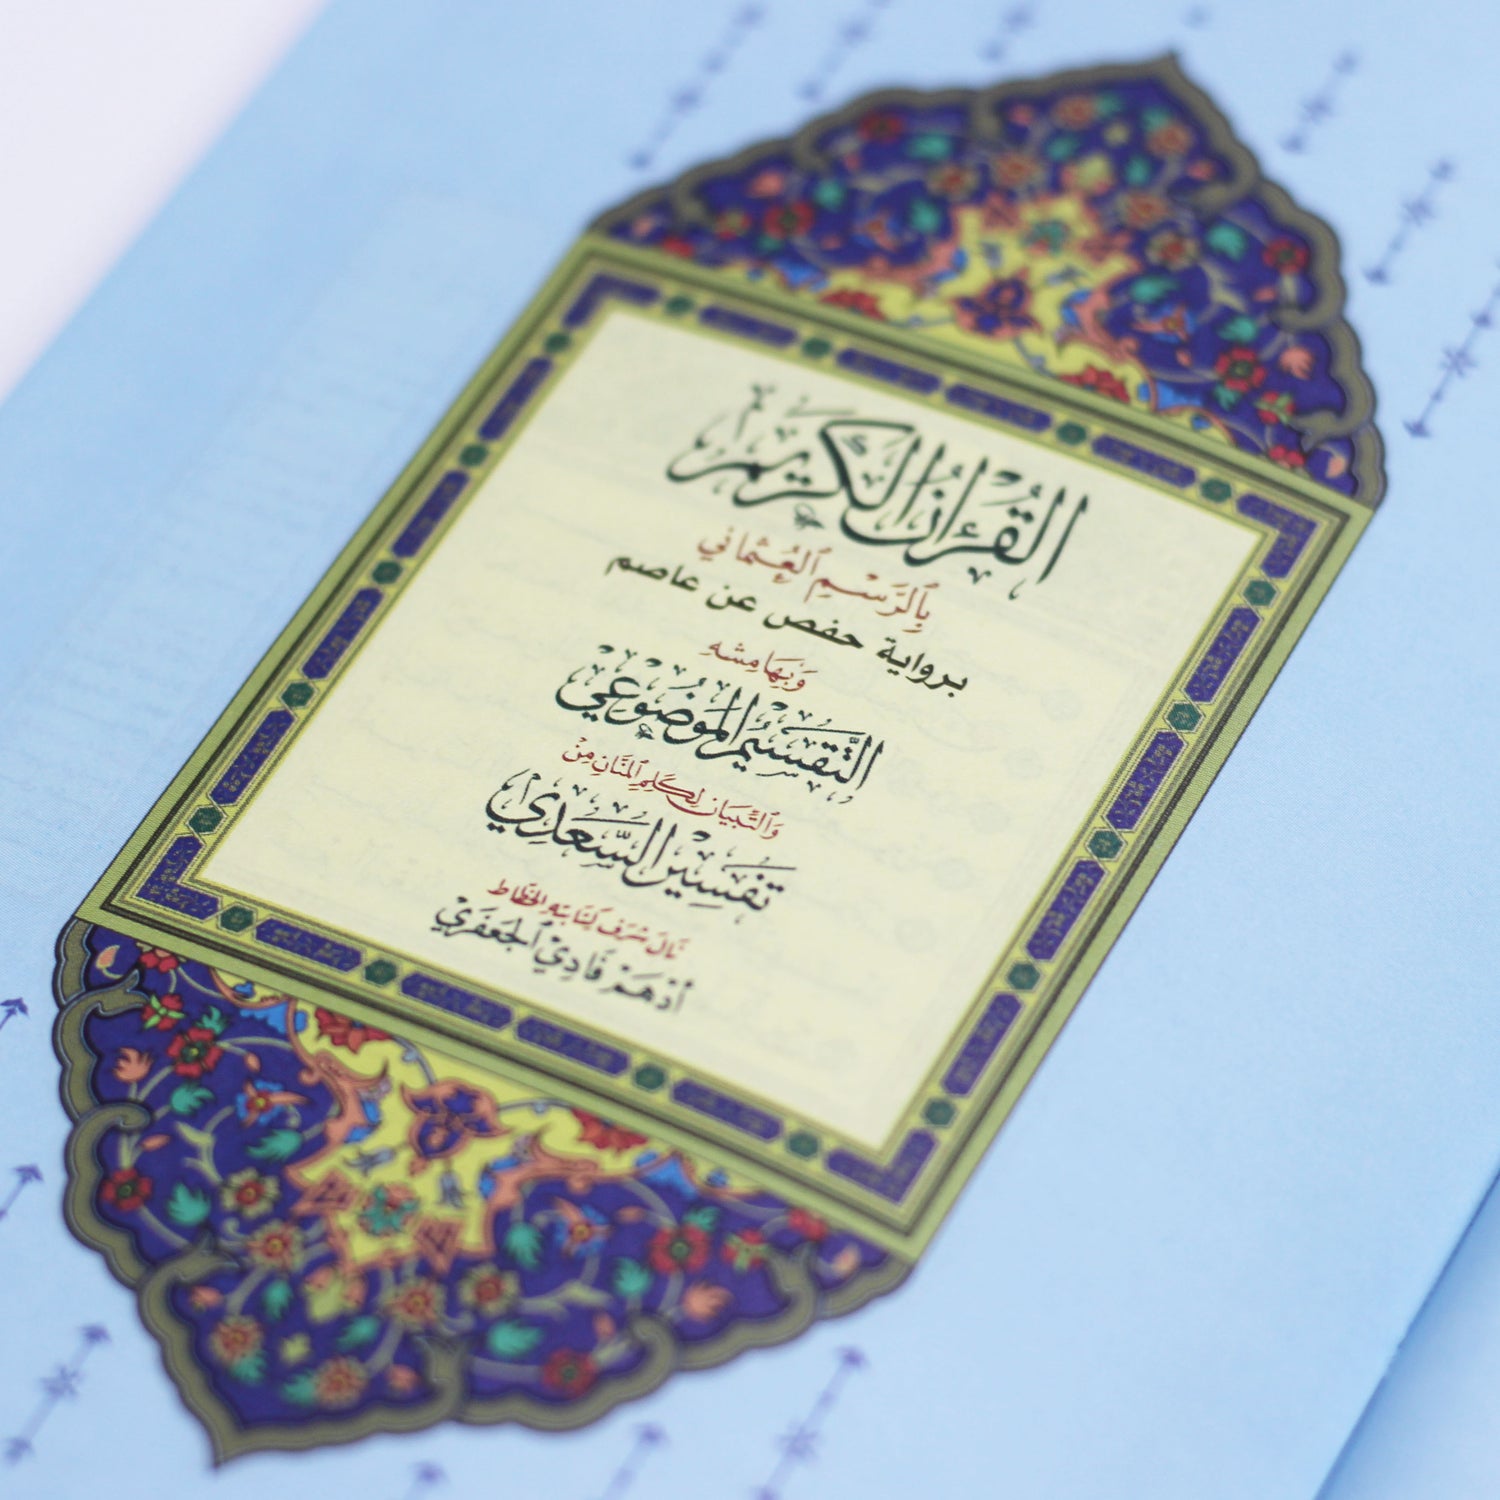 القُرْءَانُ الكَرِيمُ
بِالرَّسْمِ العُثْمَانِي
برواية حفص عن عاصم
وَبِهَامِشِهِ
التَّقْسِيمُ المَوْضُوعِي
وَالتِّبْيَانُ لِكَلِمِ المَنَّانِ مِنْ
تَفْسِيرِ السَّعْدِي
نَالَ شَرَفَ كِتَابَتِهِ الخَطَّاط
أَدْهَمْ فَادِي الجَعْفَرِي